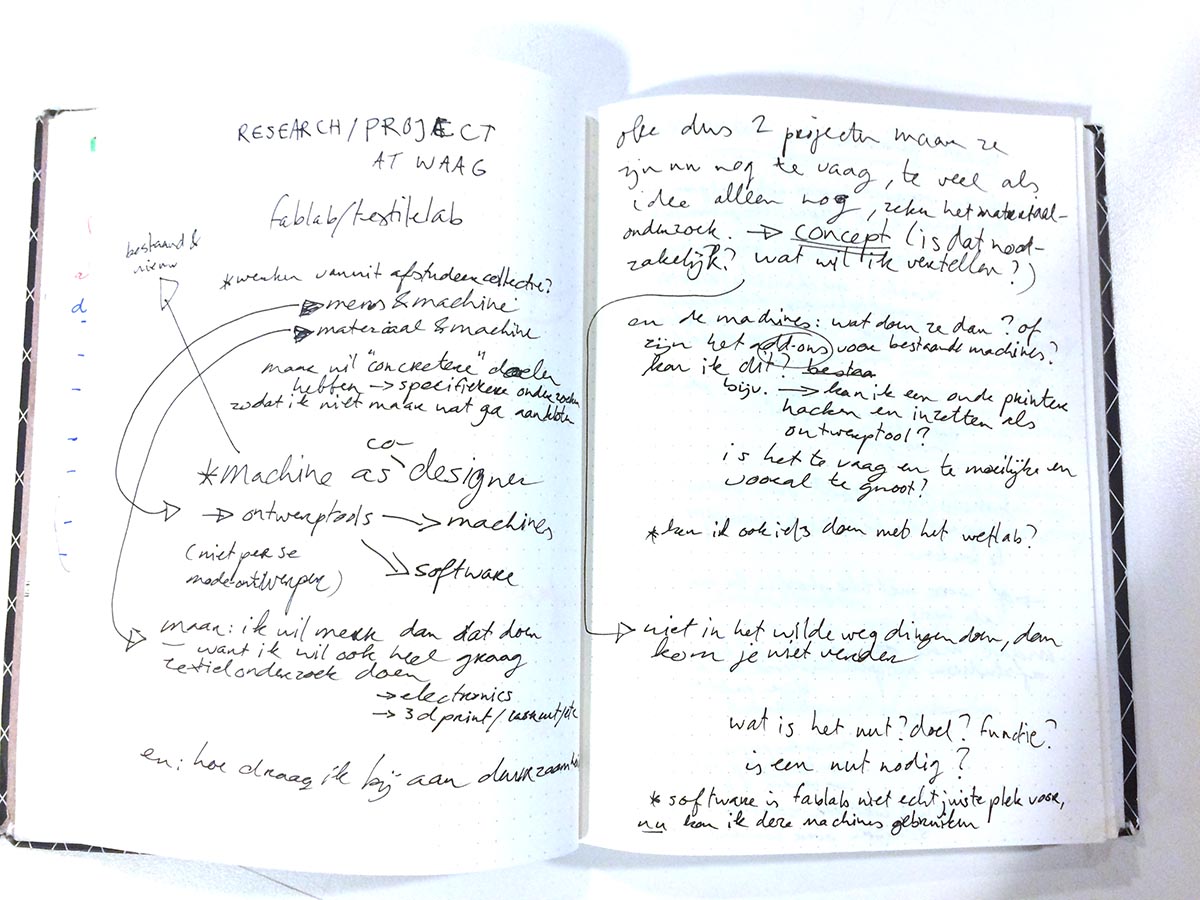 RESEARCH/PROJECT
AT WAAG
fablab/textilelab
bestaand &
nieuw
*werken vanuit afstudeercollectie?
mens & machine
materiaal & machine
maar wil "concretere" doelen
hebben → specifiekere onderzoeken
zodat ik niet maar wat ga aankloten
co-
*machine as designer
→ ontwerptools → machines
(niet per se
mode-ontwerper)
software
maar: ik wil meer dan dat doen
– want ik wil ook heel graag
textielonderzoek doen
→ electronics
→ 3d print/lasercut/etc
en: hoe draag ik bij aan
oke dus 2 projecten maar ze
zijn nu nog te vaag, te veel als
idee alleen nog, zeker het materiaal-
onderzoek. → concept (is dat nood-
zakelijk? wat wil ik vertellen?)
en de machines: wat doen ze dan? of
zijn het add-ons voor bestaande machines?
kan ik dit? bestaa
bijv. → kan ik een oude printer
hacken en inzetten als
ontwerptool?
is het te vaag en te moeilijk en
vooral te groot?
*kan ik ook iets doen met het wetlab?
niet in het wilde weg dingen doen, dan
kom je niet verder
wat is het nut? doel? functie?
is een nut nodig?
* software is fablab niet echt juiste plek voor,
nu kan ik deze machines gebruiken